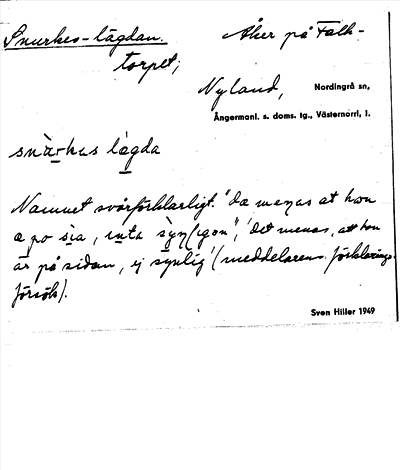 Snurkes-lägdan. Åker på Falk-
torpet;
Nyland, Nordingrå sn,
Ångermanl. s. doms. tg., Västernorrl. l.
lägda
Namnet svårförklarligt. "dä menas at hon
ä po sia, inta ", 'det menas, att hon
är på sidan, ej synlig' (meddelarens förklarings-
försök).
Sven Hiller 1949